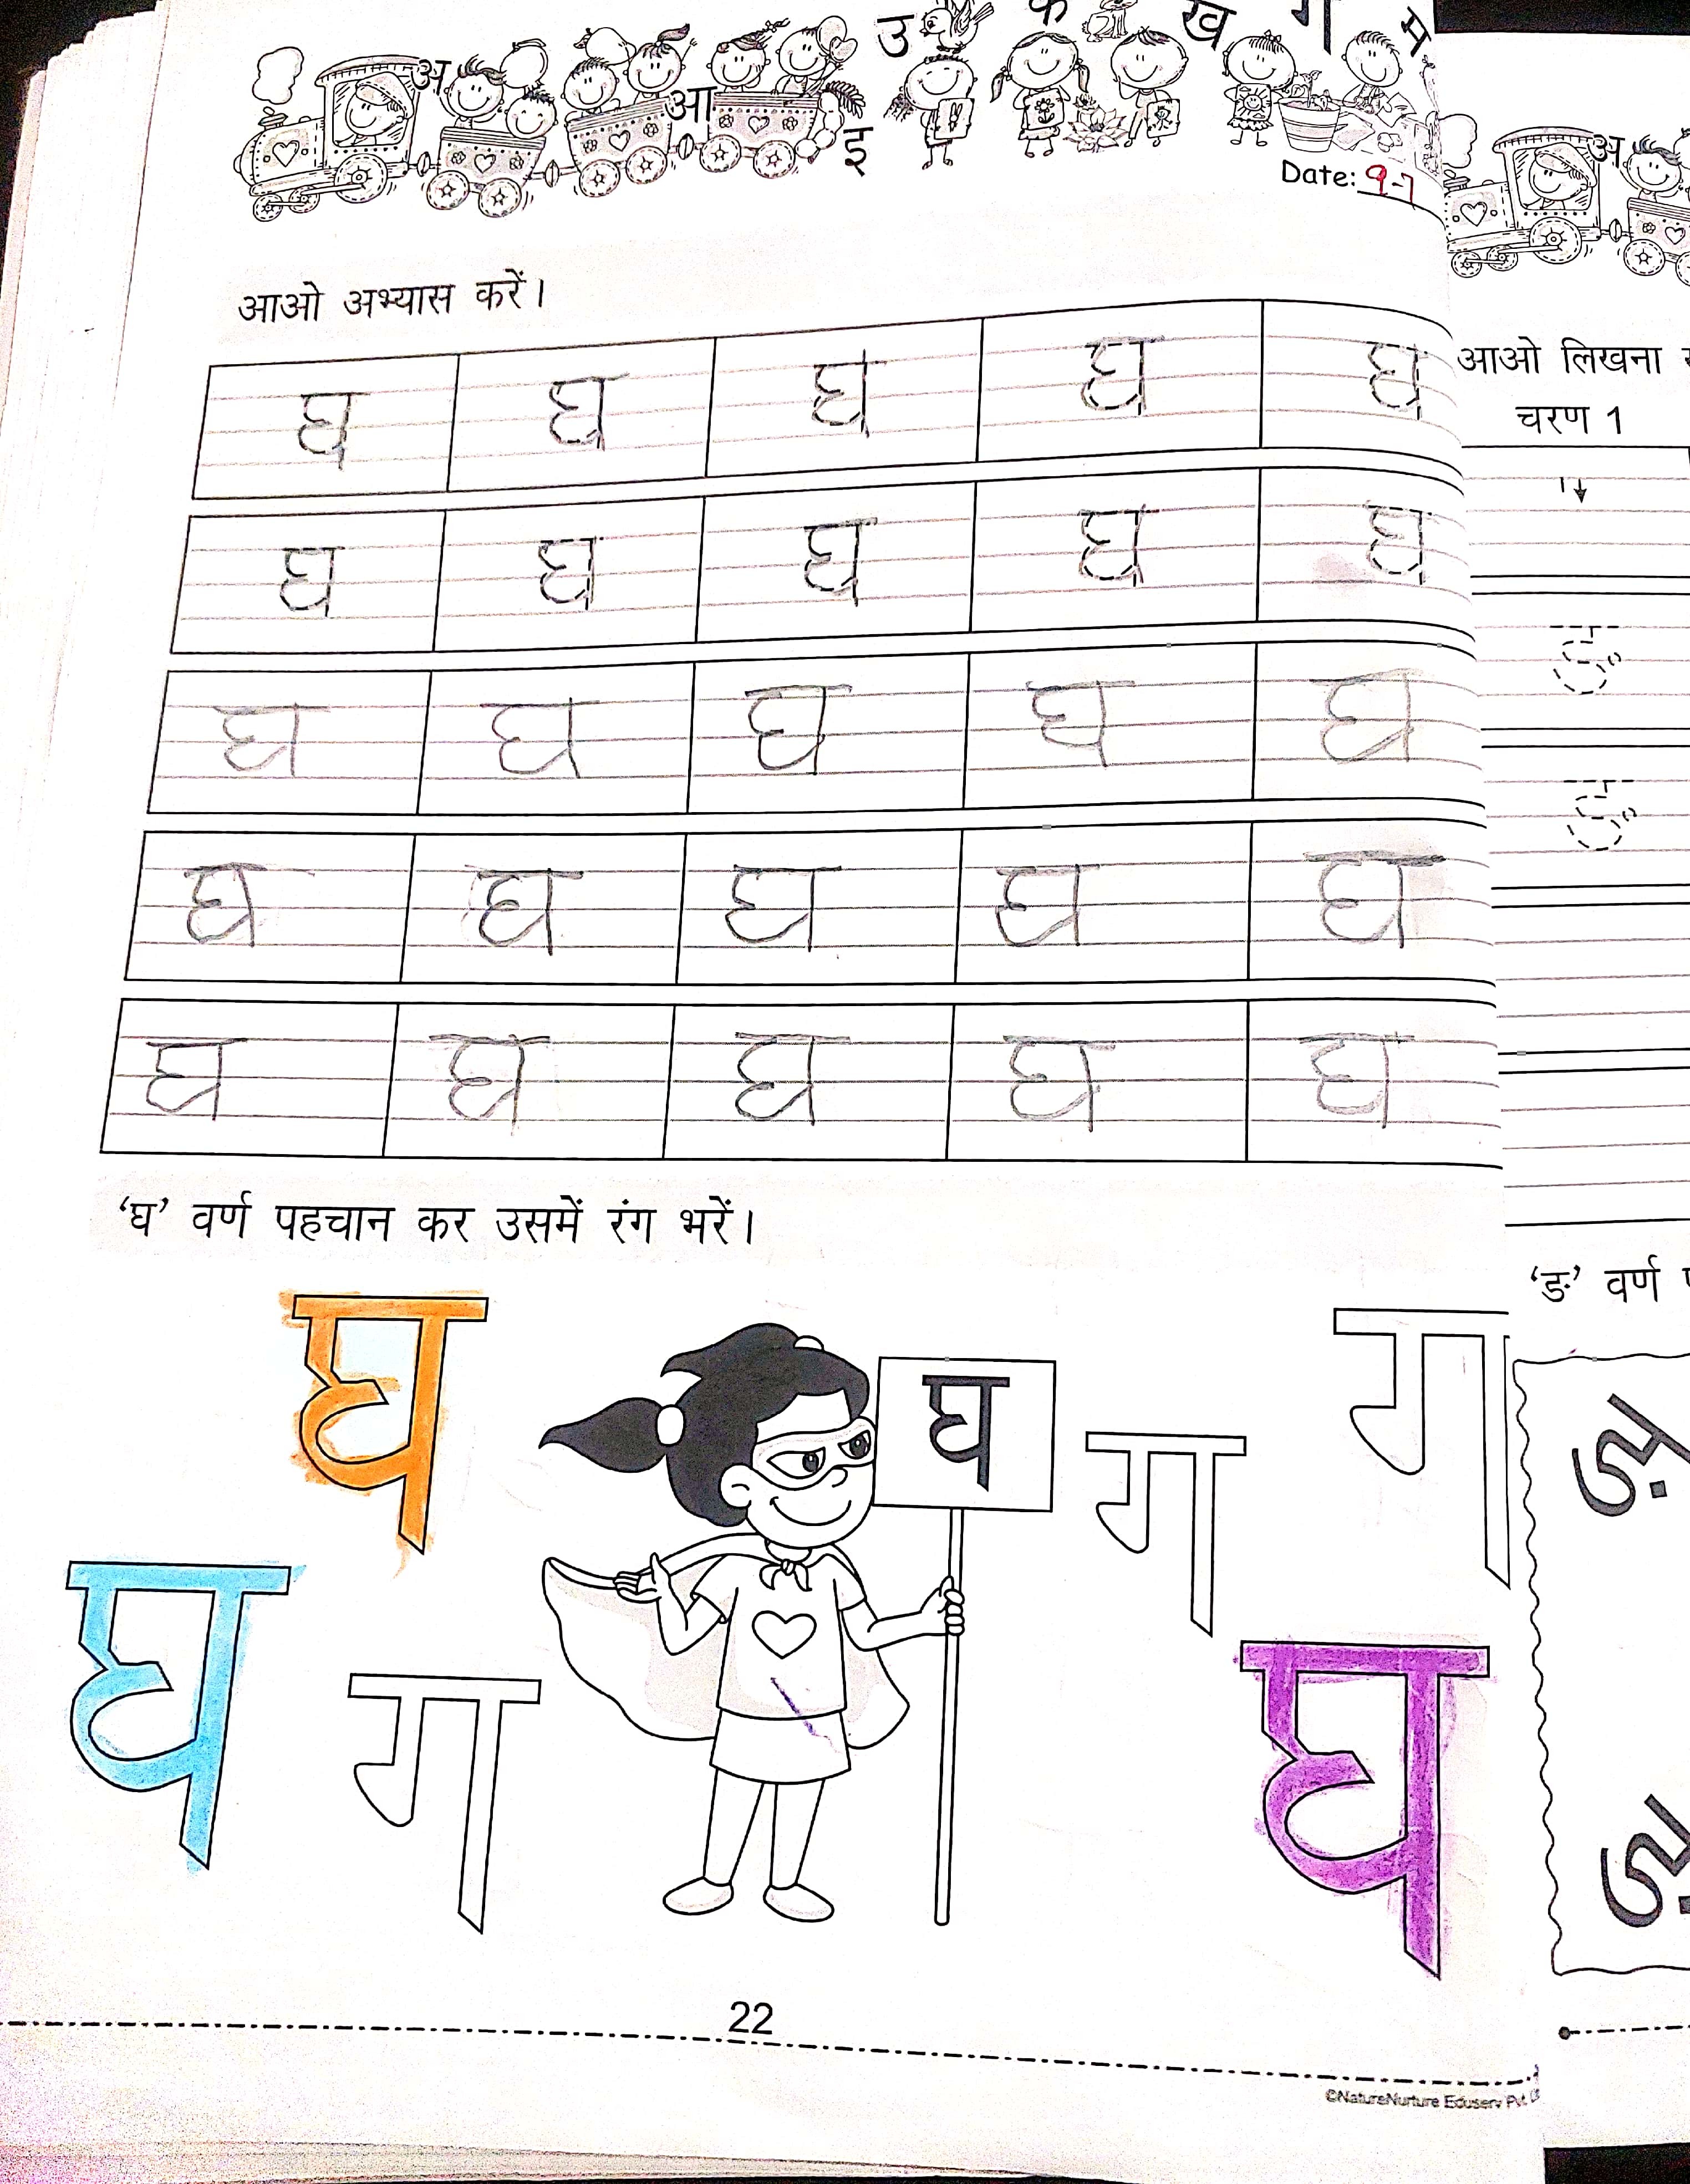 अ आ इ उ क ख ग म
Date: 9-7
आओ अभ्यास करें।
घ घ घ घ घ
घ घ घ घ घ
घ घ घ घ घ
घ घ घ घ घ
घ घ घ घ घ
‘घ’ वर्ण पहचान कर उसमें रंग भरें।
घ घ ग ग
घ ग घ
22
©NatureNurture Eduserv Pvt.
अ
आओ लिखना
चरण 1
ङ
ङ
‘ङ’ वर्ण